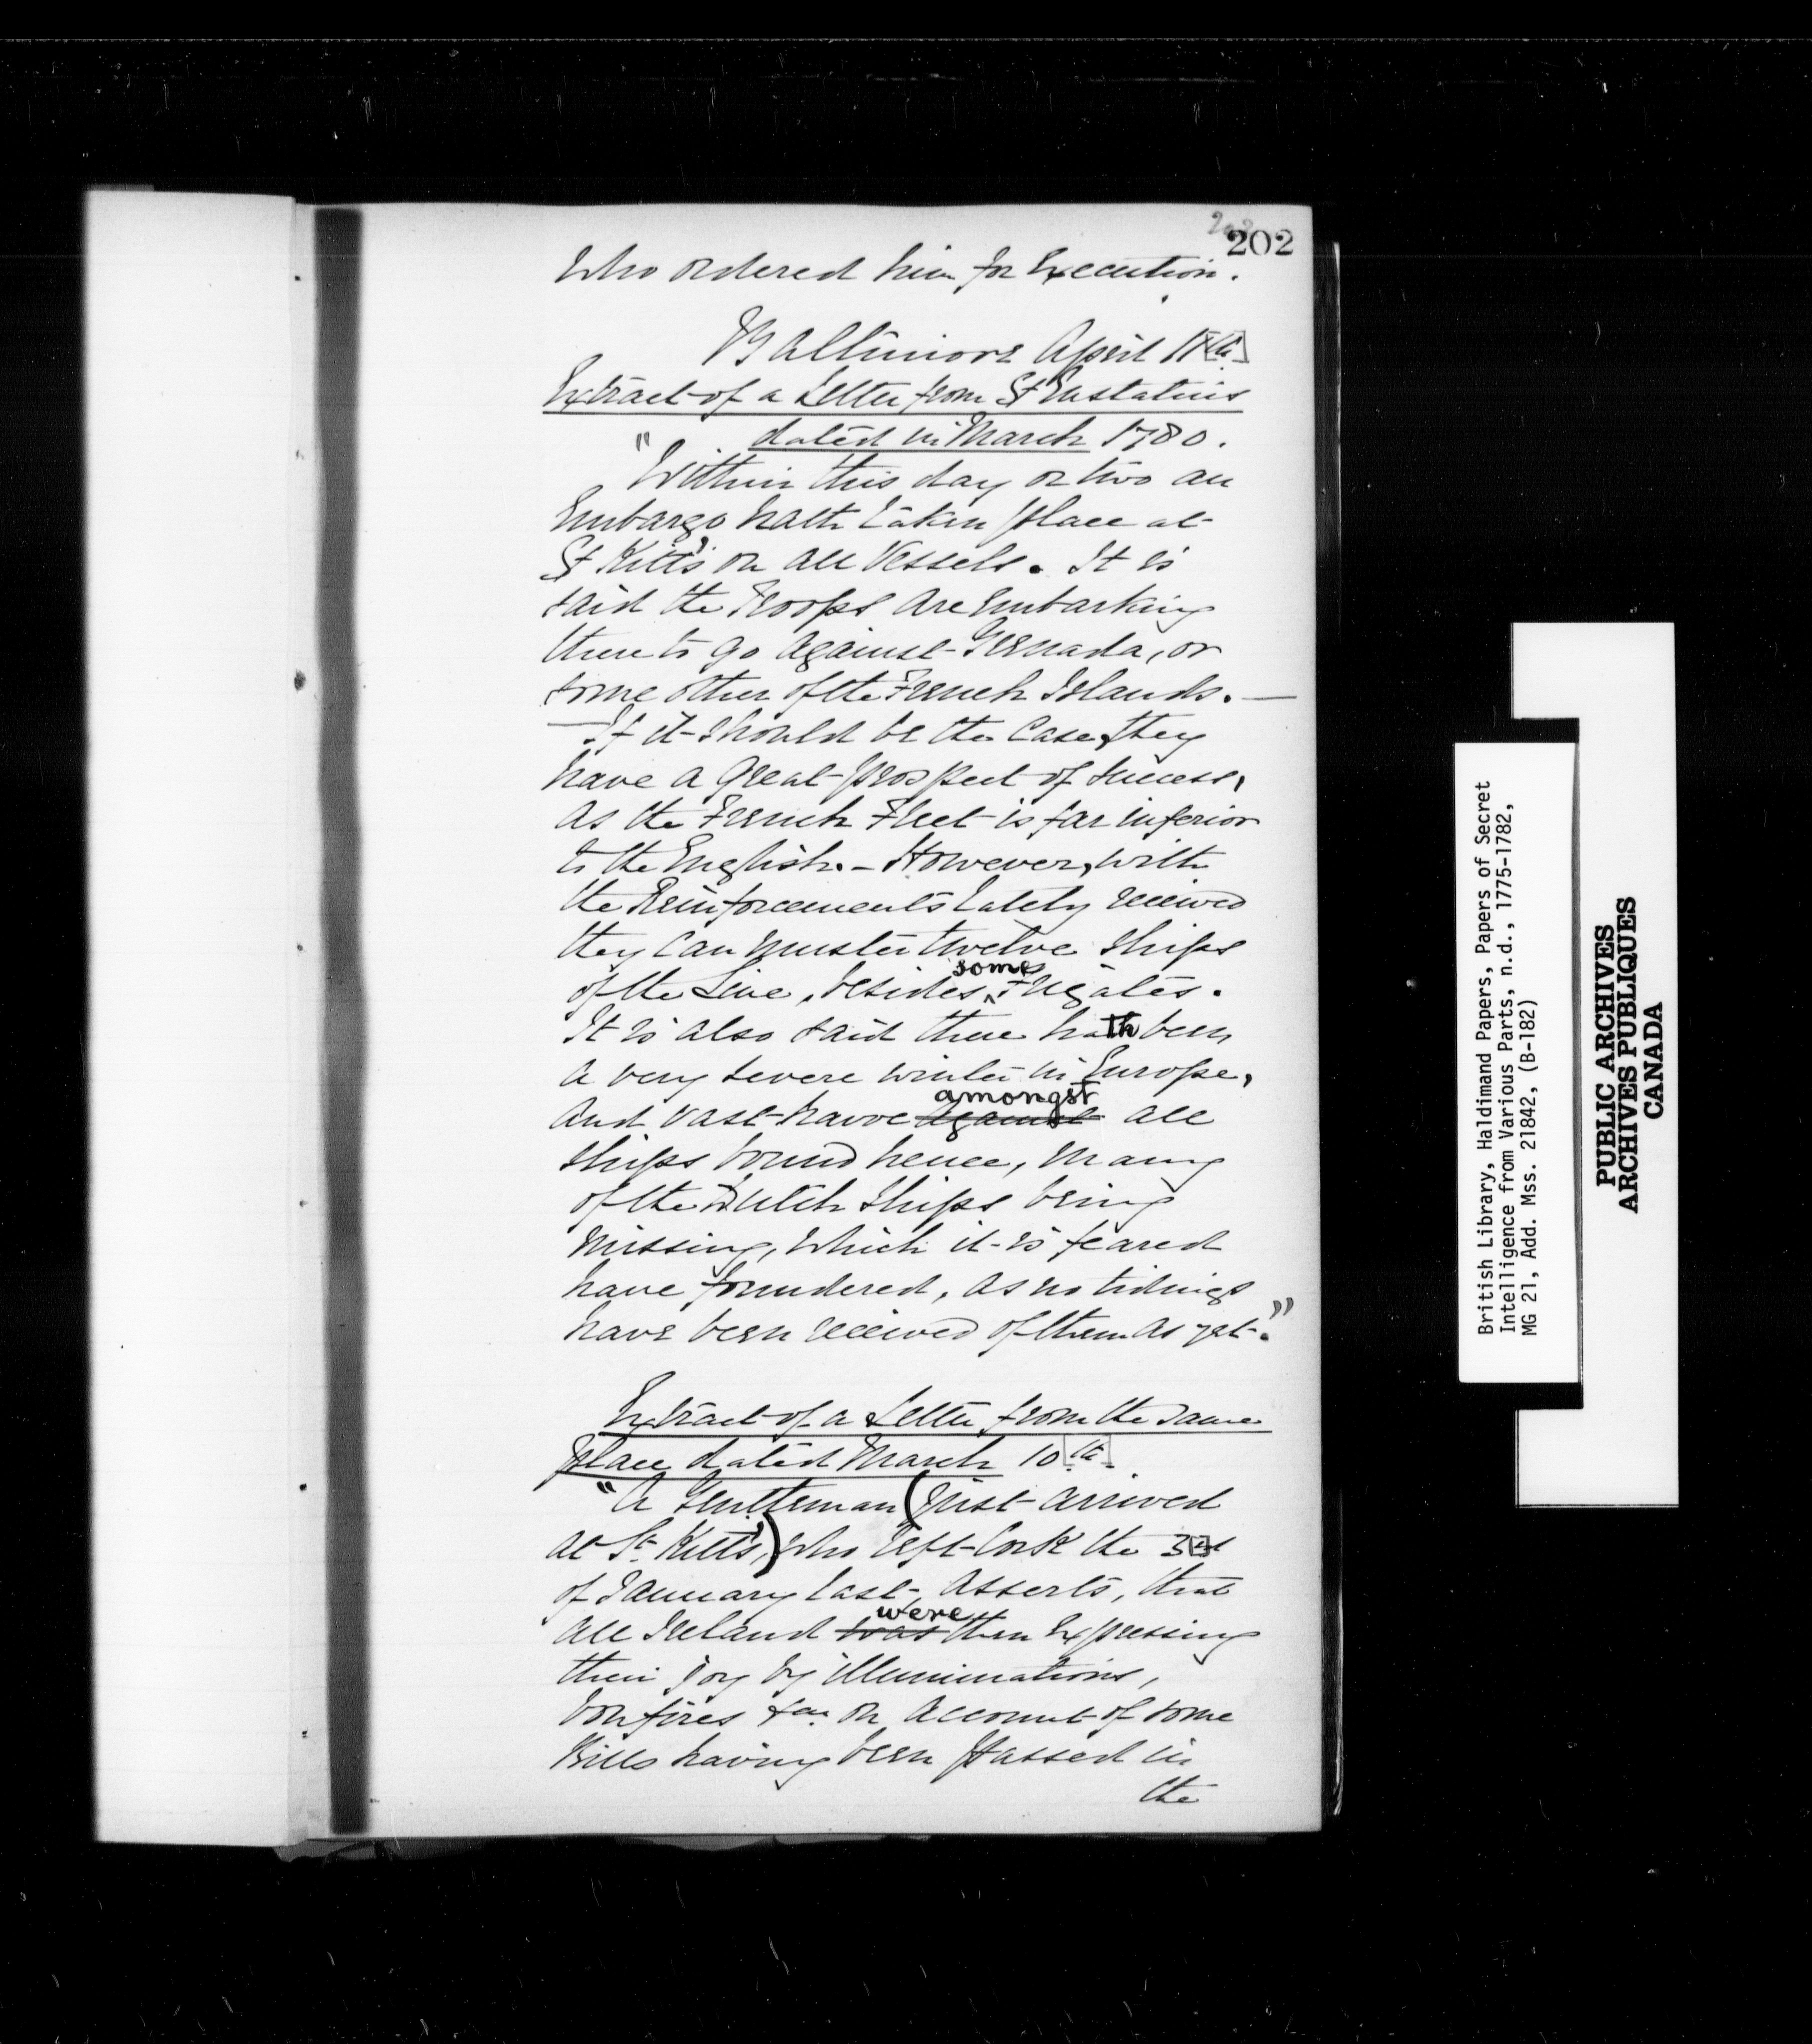 202
202
who ordered him for Execution.
Baltimore April 11[th]
Extract of a Letter from St Eustatius
dated in March 1780.
"Within this day or two an
Embargo hath taken place at
St Kitt's on all Vessels. It is
said the Troops are Embarking
there to go against Grenada, or
some other of the French Islands. —
— If it should be the Case, they
have a great prospect of success,
as the French Fleet is far inferior
to the English. — However, with
the Reinforcements lately received
they can muster twelve Ships
of the Line, besides ^ some Frigates.
It is also said there hath been
a very severe winter in Europe,
and vast havoc against amongst all
Ships bound hence, many
of the Dutch Ships being
missing, which it is feared
have foundered, as no tidings
have been received of them as yet."
Extract of a Letter from the same
place dated March 10[th].
"A Gentleman (just arrived
at St. Kitts',) who left Cork the 3[d]
of January last, asserts, that
all Ireland was were then Expressing
their joy by illuminations,
bonfires &ca. on account of some
Bills having been passed in
the
British Library, Haldimand Papers, Papers of Secret
Intelligence from Various Parts, n.d., 1775-1782,
MG 21, Add. Mss. 21842, (B-182)
PUBLIC ARCHIVES
ARCHIVES PUBLIQUES
CANADA